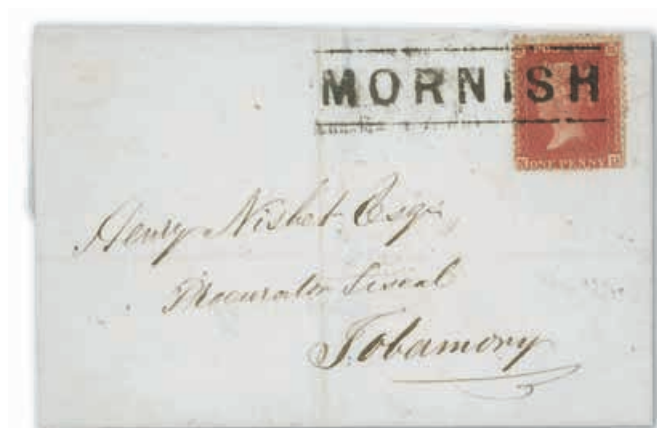 MORNISH
ONE PENNY
Henry Nisbet Esqr
Procurator Fiscal
Tobamory